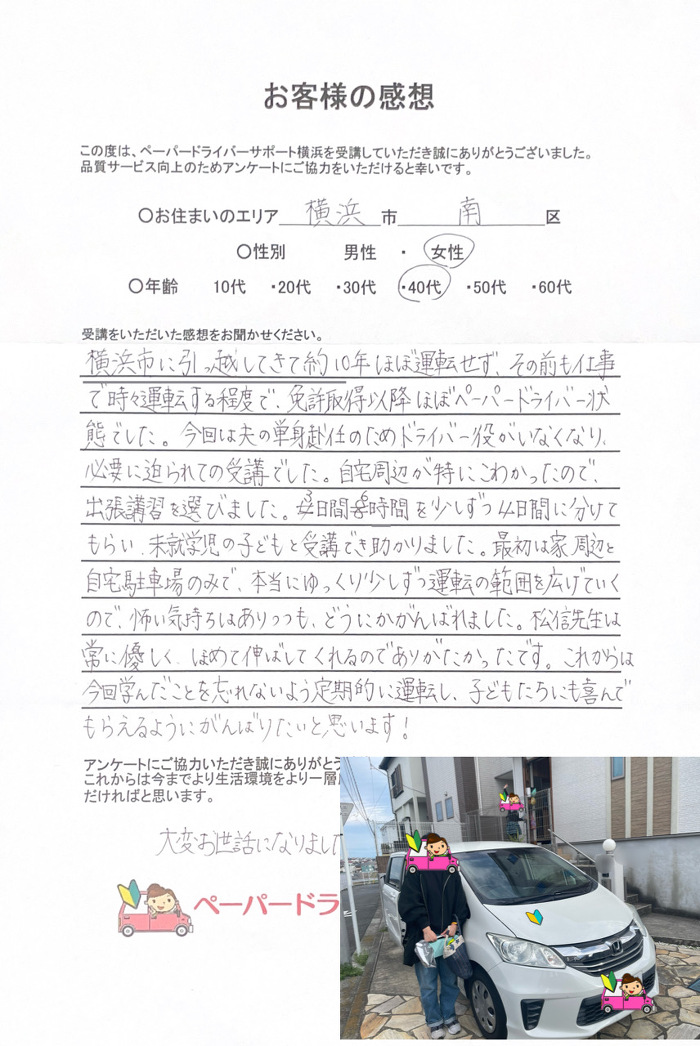 お客様の感想
この度は、ペーパードライバーサポート横浜を受講していただき誠にありがとうございました。
品質サービス向上のためアンケートにご協力をいただけると幸いです。
○お住まいのエリア 横浜 市 南 区
○性別 男性 ・ 女性
○年齢 10代 ・20代 ・30代 ・40代 ・50代 ・60代
受講をいただいた感想をお聞かせください。
横浜市に引っ越してきて約10年ほぼ運転せず、その前も仕事
で時々運転する程度で、免許取得以降ほぼペーパードライバー状
態でした。今回は夫の単身赴任のためドライバー役がいなくなり、
必要に迫られての受講でした。自宅周辺が特にこわかったので、
出張講習を選びました。3日間 時間を少しずつ4日間に分けて
もらい、未就学児の子どもと受講でき助かりました。最初は家周辺と
自宅駐車場のみで、本当にゆっくり少しずつ運転の範囲を広げていく
ので、怖い気持ちはありつつも、どうにかがんばれました。松信先生は
常に優しく、ほめて伸ばしてくれるのでありがたかったです。これからは
今回学んだことを忘れないよう定期的に運転し、子どもたちにも喜んで
もらえるようにがんばりたいと思います!
アンケートにご協力いただき誠にありがとう
これからは今までより生活環境をより一層
だければと思います。
大変お世話になりました
ペーパードラ